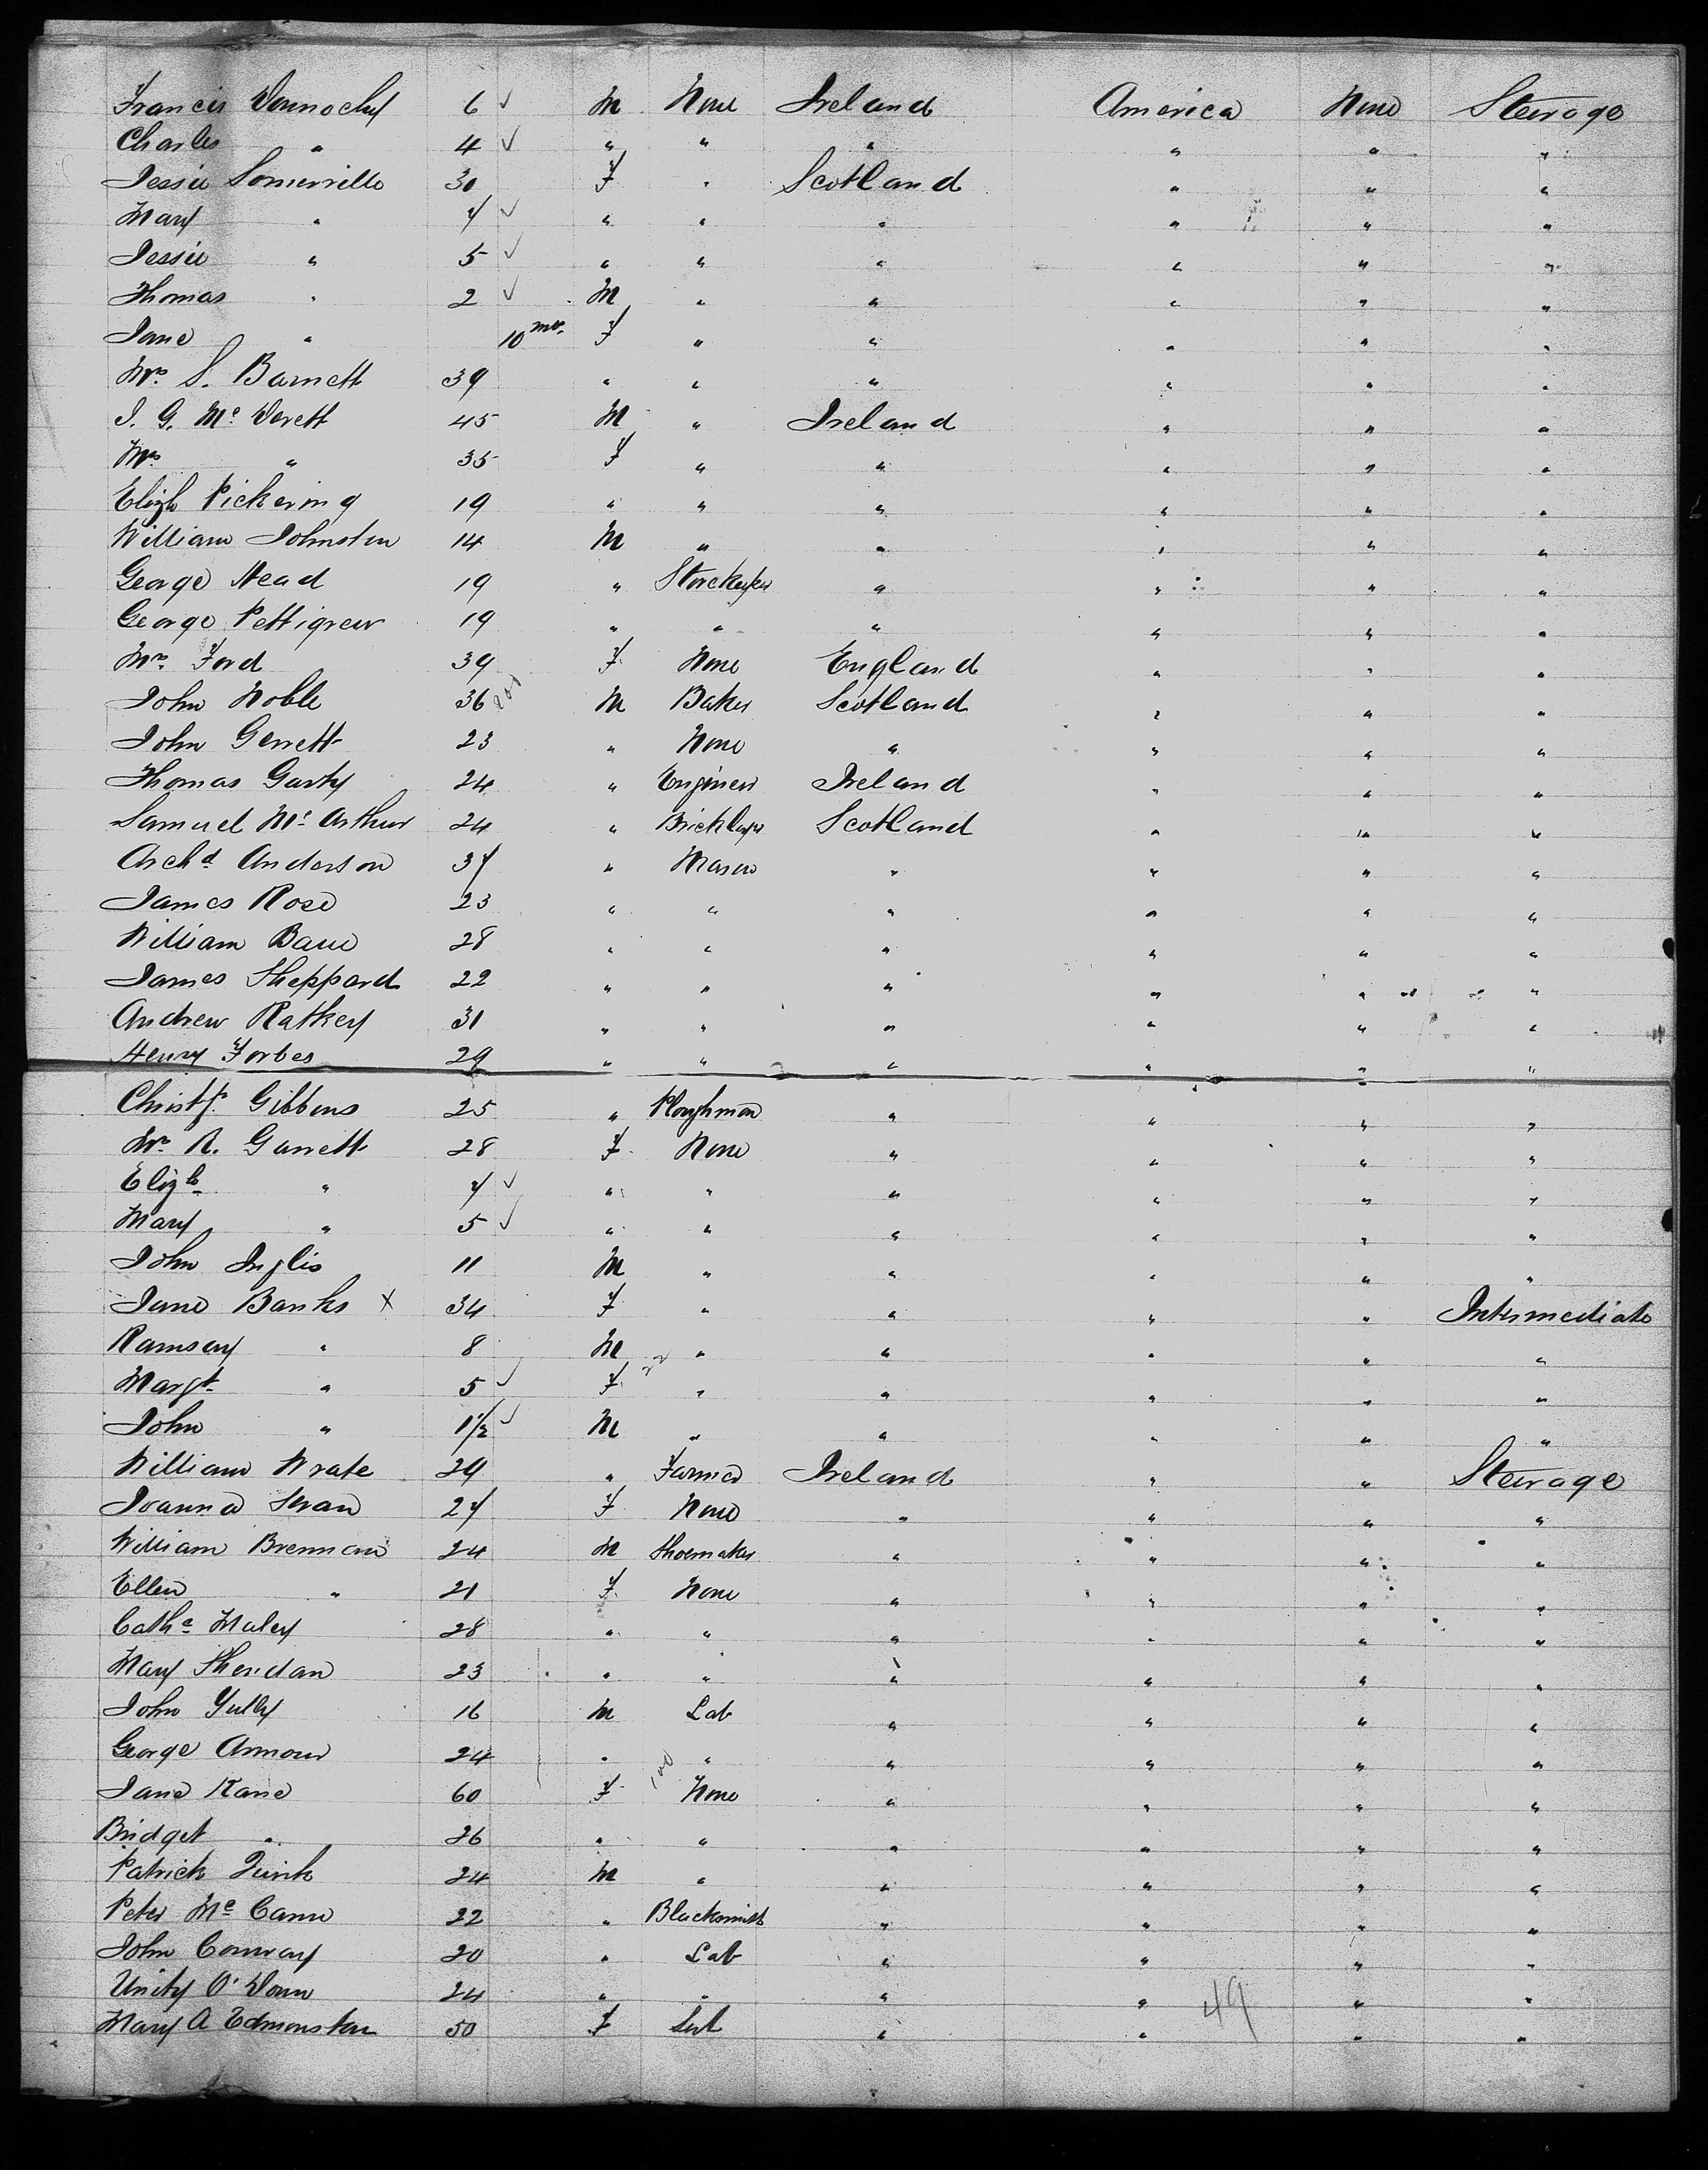 Francis Donnochy 6 ✓ M None Ireland America None Steerage
Charles " 4 ✓ " " " " " "
Jessie Somerville 30 F " Scotland " " "
Mary " 7 ✓ " " " " " "
Jessie " 5 ✓ " " " " " "
Thomas " 2 ✓ M " " " " "
Jane " 10 mos. F " " " " "
Mrs. S. Barnett 39 " " " " " "
J. G. Mc Devett 45 M " Ireland " " "
Mrs. " 35 F " " " " "
Elizh Pickering 19 " " " " " "
William Johnston 14 M " " " " "
George Nead 19 " Storekeeper " " " "
George Pettigrew 19 " " " " " "
Mrs. Ford 39 F None England " " "
John Noble 36 M Baker Scotland " " "
John Gerrett 23 " None " " " "
Thomas Garty 24 " Engineer Ireland " " "
Samuel Mc Arthur 24 " Bricklayer Scotland " " "
Archd Anderson 37 " Mason " " " "
James Rose 23 " " " " " "
William 28 " " " " " "
James Sheppard 22 " " " " " "
Andrew Rathey 31 " " " " " "
Henry Forbes 29 " " " " " "
Christr. Gibbons 25 " Ploughman " " " "
Mrs. R. Garrett 28 F None " " " "
Elizh " 7 ✓ " " " " " "
Mary " 5 ✓ " " " " " "
John Inglis 11 M " " " " "
Jane Banks X 34 F " " " " Intermediate
Ramsay " 8 M " " " " "
Margt. " 5 ✓ F " " " " "
John " 1½ ✓ M " " " " "
William Wrate 29 " Farmer Ireland " " Steerage
Joanna Swan 27 F None " " " "
William Brennan 24 M Shoemaker " " " "
Ellen " 21 F None " " " "
Cathe Maley 28 " " " " " "
Mary Sheridan 23 " " " " " "
John Tully 16 M Lab " " " "
George Armour 24 " " " " " "
Jane Kane 60 F None " " " "
Bridget " 26 " " " " " "
Patrick Quirk 24 M " " " " "
Peter Mc Cann 22 " Blacksmith " " " "
John Conway 20 " Lab " " " "
Unity O'Donn 24 " " " " " "
Mary A Edmonston 50 F " " " "
49